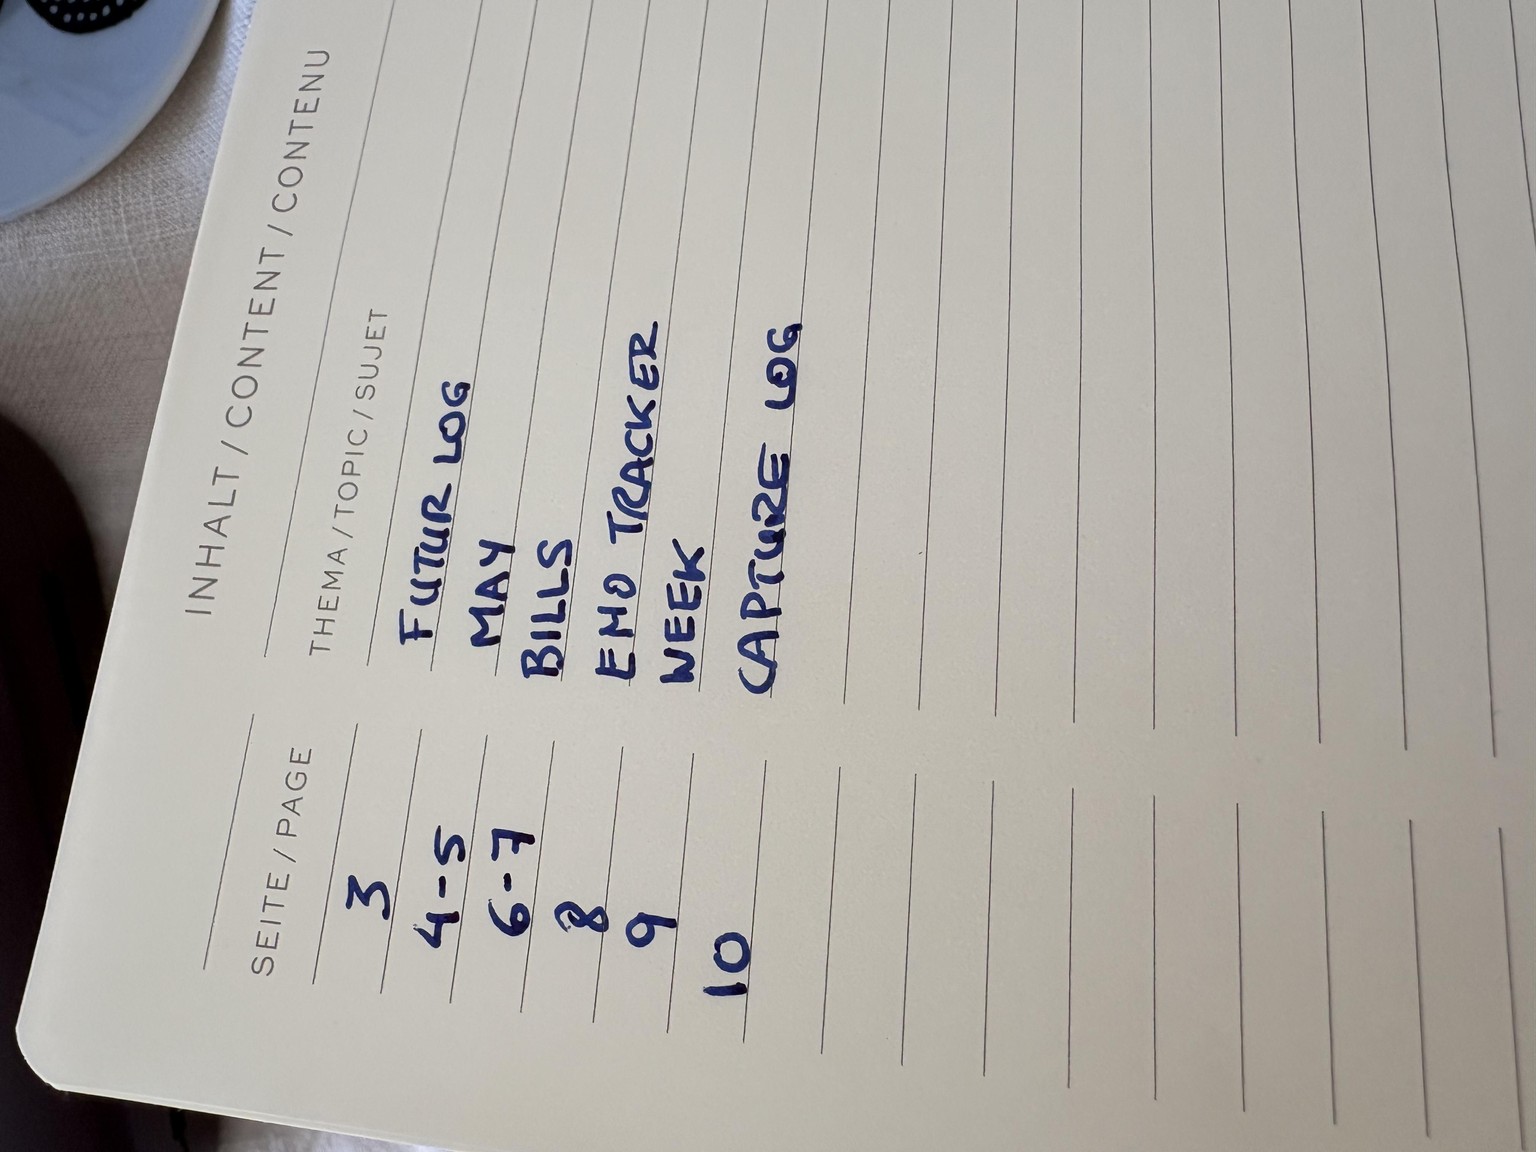 INHALT / CONTENT / CONTENU
SEITE / PAGE THEMA / TOPIC / SUJET
3 FUTUR LOG
4-5 MAY
6-7 BILLS
8 EMO TRACKER
9 WEEK
10 CAPTURE LOG